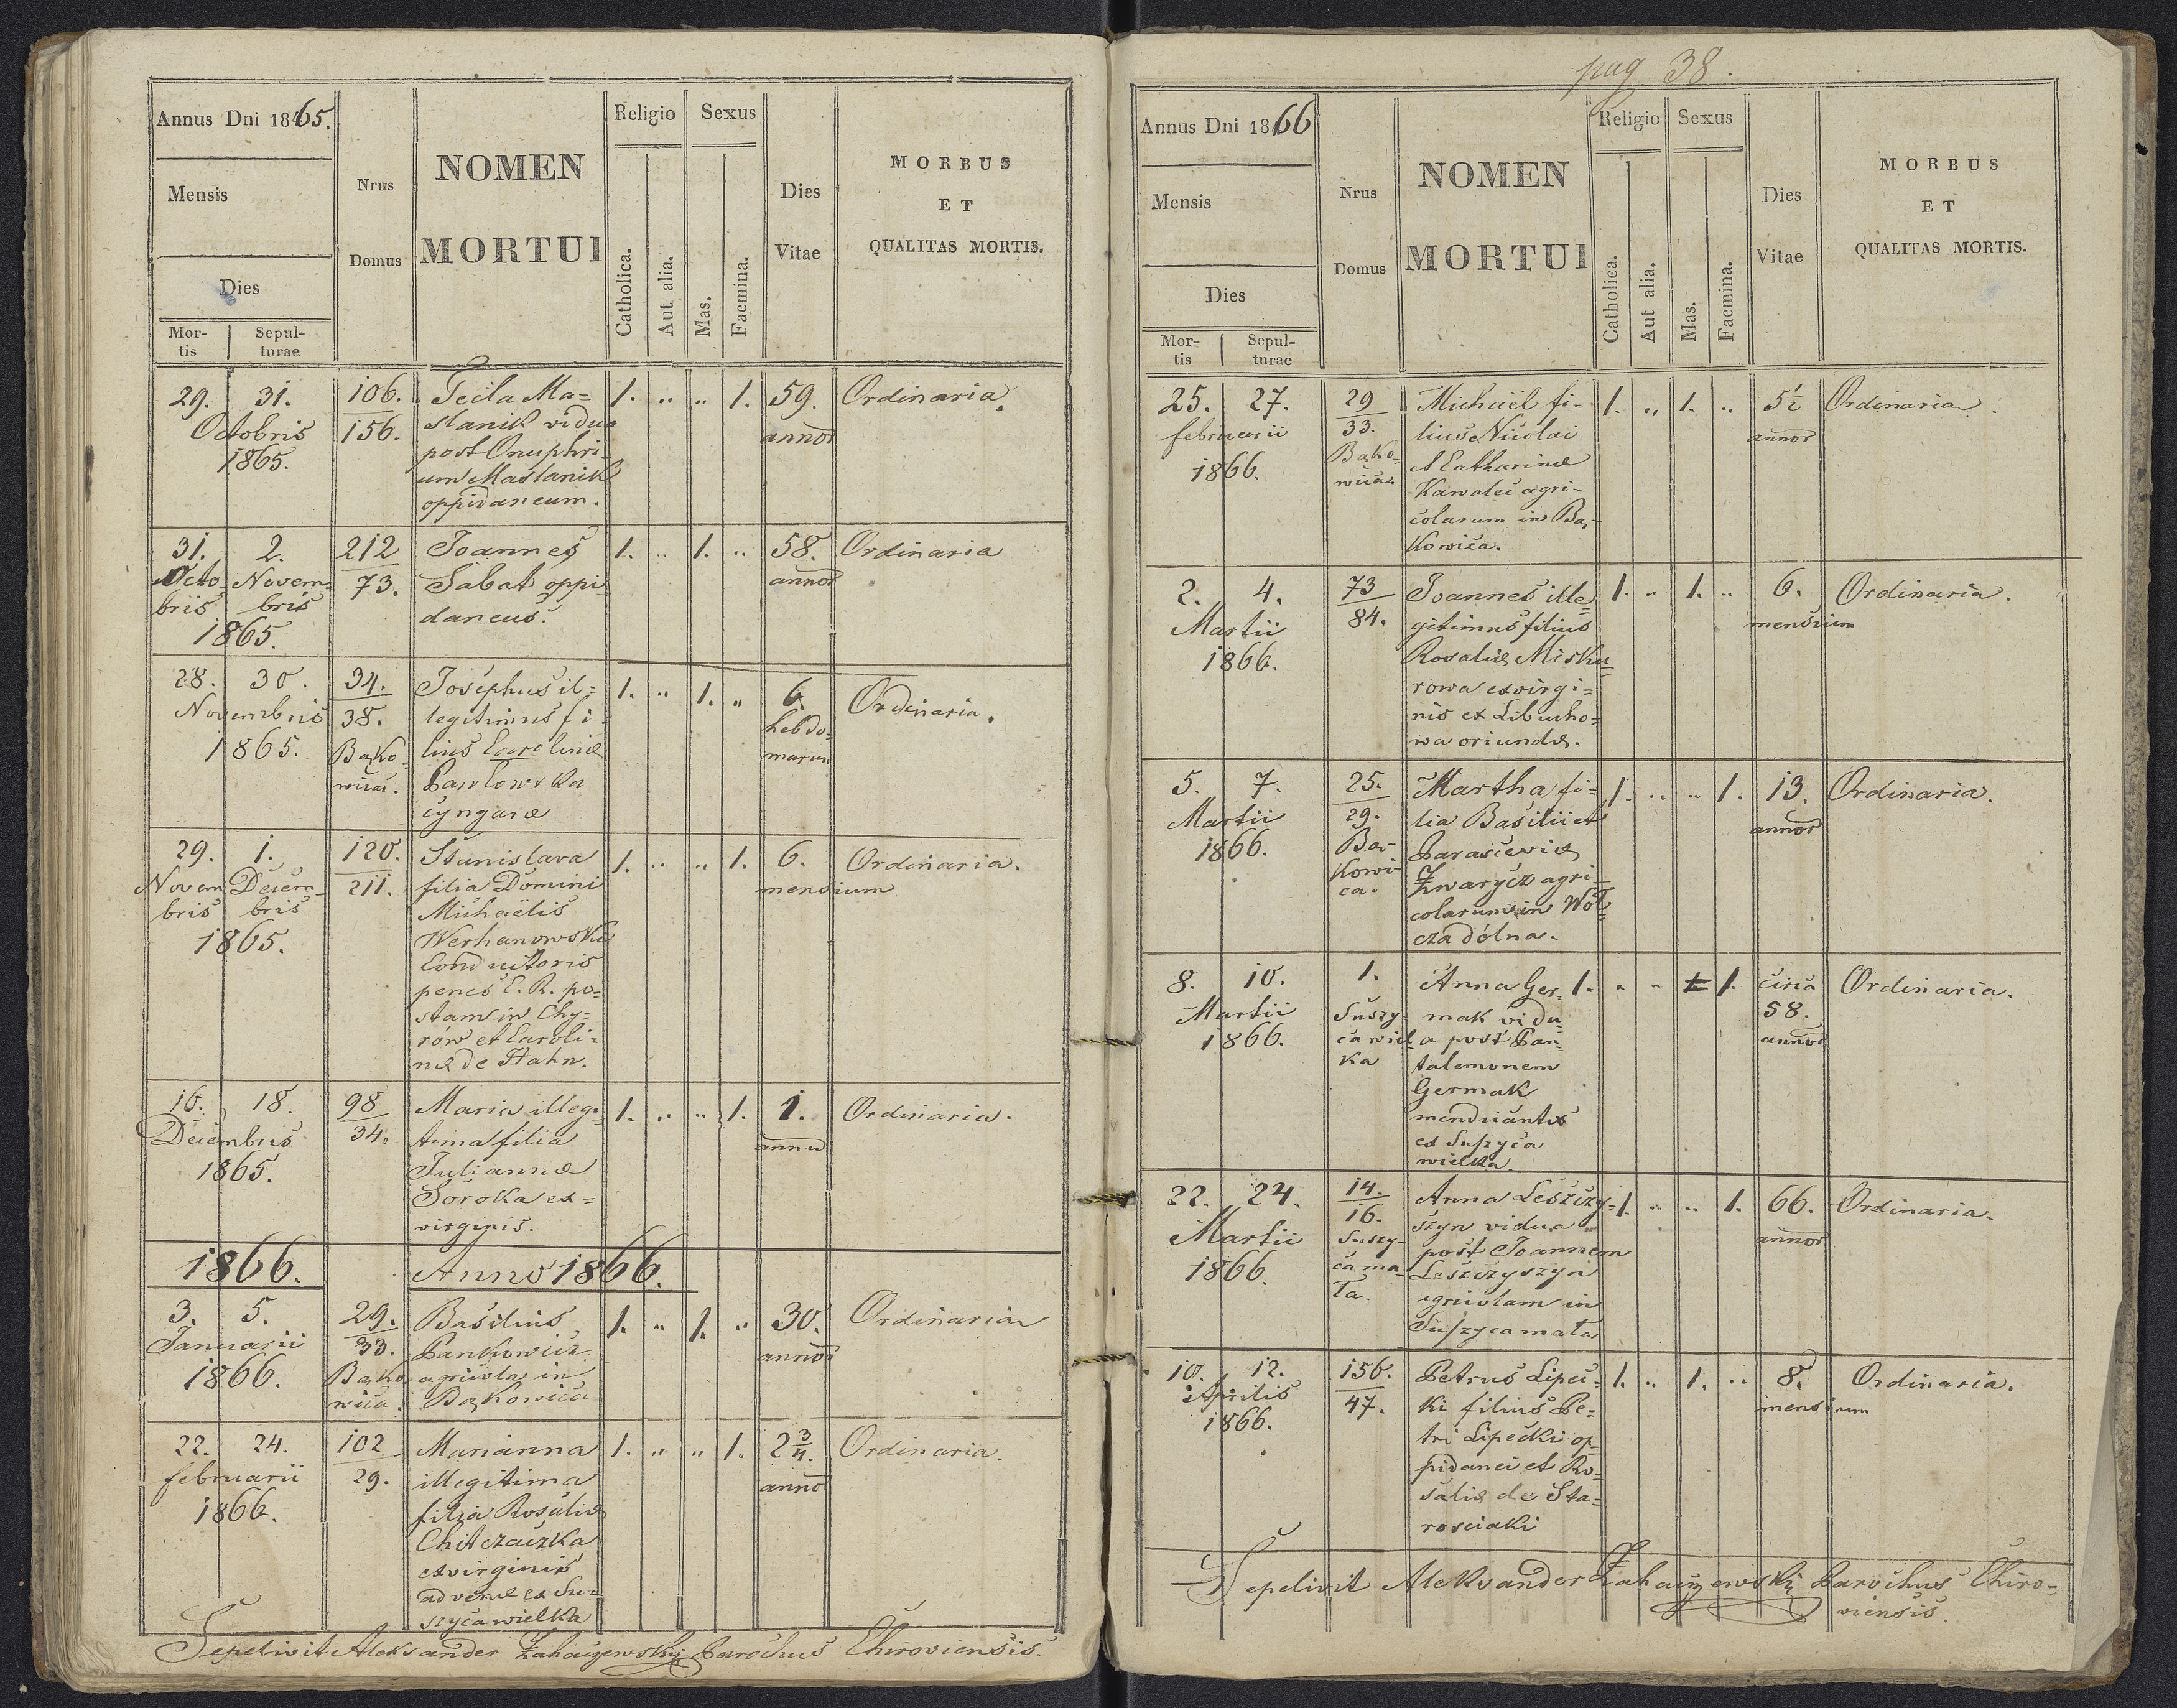 Annus Dni 1865.
Mensis
Dies
Mor-
tis
Sepul-
turae
Nrus
Domus
NOMEN
MORTUI
Religio
Catholica.
Aut alia.
Sexus
Mas.
Faemina.
Dies
Vitae
MORBUS
ET
QUALITAS MORTIS.
29. 31.
Octobris
1865.
106.
156.
Tecla Ma=
slanik vidua
post Onuphri-
um Maslanik
oppidaneum.
1. .. .. 1.
59.
annor
Ordinaria.
31. 2.
Octo Novem-
bris bris
1865.
212
73.
Joannes
Sabat oppi
daneus.
1. .. 1. ..
58.
annor
Ordinaria
28. 30.
Novembris
1865.
34.
38.
Bąko-
wica.
Josephus il=
legitimus fi
lius Carolinæ
Pawłowska
cyngaræ
1. .. 1. ..
6.
hebdo-
marum
Ordinaria.
29. 1.
Novem Decem-
bris bris
1865.
120.
211.
Stanislava
filia Domini
Michaëlis
Werhanowski
Conductoris
penes C. R. po=
stam in Chy=
rów et Caroli=
næ de Hahn.
1. .. .. 1.
6.
mensium
Ordinaria.
16. 18.
Decembris
1865.
98
34.
Maria illegi=
tima filia
Juliannæ
Soroka ex=
virginis.
1. .. .. 1.
1.
anni
Ordinaria.
1866. Anno 1866.
3. 5.
Januarii
1866.
29.
33.
Bąko
wica.
Basilius
Pankowicz
agricola in
Bąkowica
1. .. 1. ..
30.
annor
Ordinaria
22. 24.
februarii
1866.
102
29.
Marianna
illegitima
filia Rosaliæ
exvirginis
advenæ ex Su=
szyca wielka
1. .. .. 1.
2 3/4.
anno
Ordinaria.
Sepelivit Aleksander Zahajewskij Parochus Chiroviensis.
pag 38.
Annus Dni 1866
Mensis
Dies
Mor-
tis
Sepul-
turae
Nrus
Domus
NOMEN
MORTUI
Religio
Catholica.
Aut alia.
Sexus
Mas.
Faemina.
Dies
Vitae
MORBUS
ET
QUALITAS MORTIS.
25. 27.
februarii
1866.
29
33.
Bąko-
wica
Michaël fi=
lius Nicolai
et Catharinæ
Kawalec agri-
colarum in Bą-
kowica.
1. .. 1. ..
5 1/2
annor
Ordinaria.
2. 4.
Martii
1866.
73
84.
Joannes ille=
gitimus filius
Rosaliæ Misku=
rowa exvirgi=
nis ex Libucho=
wa oriundæ.
1. .. 1. ..
6.
mensium
Ordinaria.
5. 7.
Martii
1866.
25.
29.
Bą-
kowi-
ca.
Martha fi=
lia Basilii et
Parasceviæ
Zwarycz agri-
colarum in Woł=
cza dólna.
1. .. .. 1.
13.
annor
Ordinaria.
8. 10.
Martii
1866.
1.
Suszy-
ca wiel
ka
Anna Ger-
mak vidu=
a post Pan=
talemonem
Germak
mendicantes
ex Suszyca
wielka.
1. .. .. 1.
circa
58.
annor
Ordinaria.
22. 24.
Martii
1866.
14.
16.
Suszy-
ca ma
ła.
Anna Leszczy=
szyn vidua
post Joannem
Leszczyszyn
agricolam in
Suszyca mała
1. .. .. 1.
66.
annor
Ordinaria.
10. 12.
Aprilis
1866.
156.
47.
Petrus Lipec=
ki filius Pe=
tri Lipecki op=
pidanei et Ro=
saliæ de Sta=
rosciaki
1. .. 1. ..
8.
mensium
Ordinaria.
Sepelivit Aleksander Zahajewskij Parochus Chiro-
viensis.